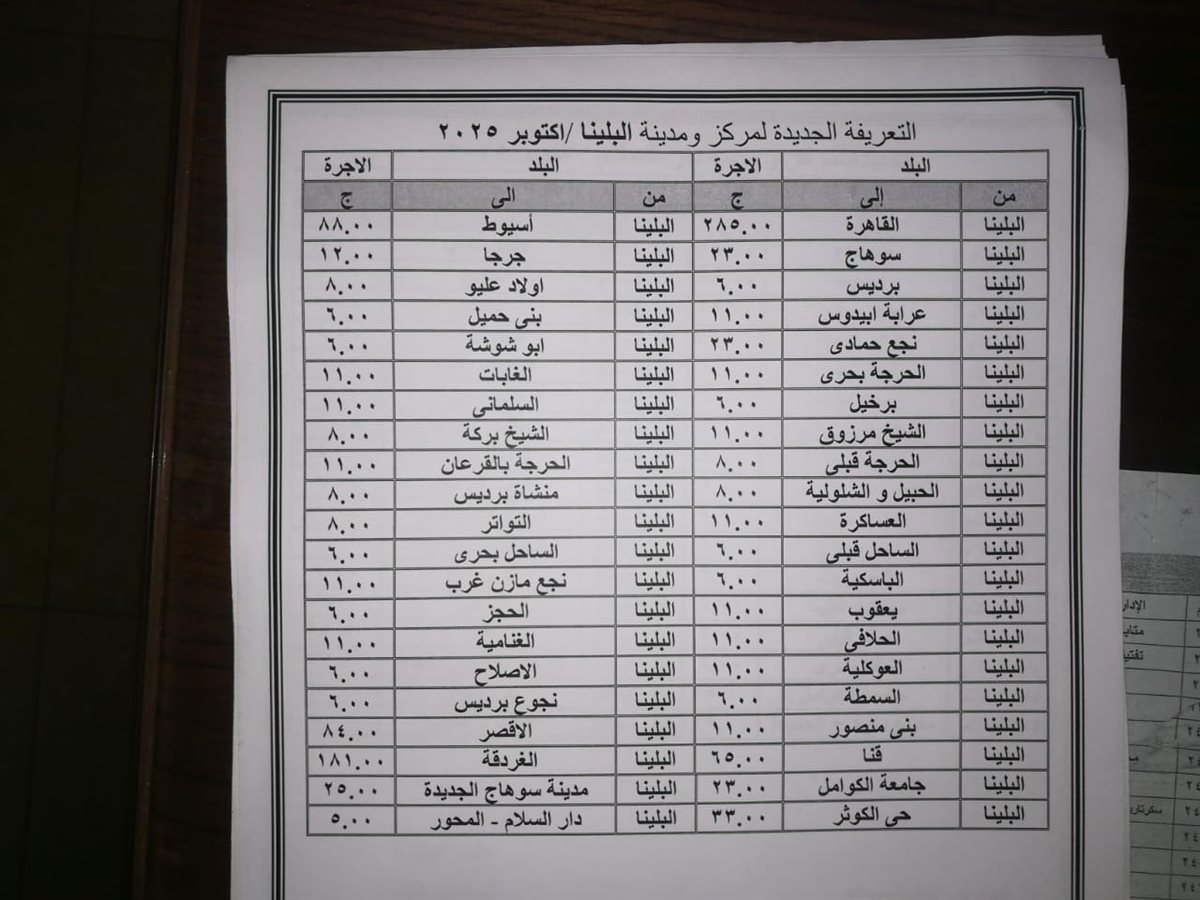 التعريفة الجديدة لمركز ومدينة البلينا /اكتوبر ٢٠٢٥
البلد الاجرة البلد الاجرة
من إلى ج من الى ج
البلينا القاهرة ٢٨٥.٠٠ البلينا أسيوط ٨٨.٠٠
البلينا سوهاج ٢٣.٠٠ البلينا جرجا ١٢.٠٠
البلينا برديس ٦.٠٠ البلينا اولاد عليو ٨.٠٠
البلينا عرابة ابيدوس ١١.٠٠ البلينا بنى حميل ٦.٠٠
البلينا نجع حمادى ٢٣.٠٠ البلينا ابو شوشة ٦.٠٠
البلينا الحرجة بحرى ١١.٠٠ البلينا الغابات ١١.٠٠
البلينا برخيل ٦.٠٠ البلينا السلمانى ١١.٠٠
البلينا الشيخ مرزوق ١١.٠٠ البلينا الشيخ بركة ٨.٠٠
البلينا الحرجة قبلى ٨.٠٠ البلينا الحرجة بالقرعان ١١.٠٠
البلينا الحبيل و الشلولية ٨.٠٠ البلينا منشاة برديس ٨.٠٠
البلينا العساكرة ١١.٠٠ البلينا التواتر ٨.٠٠
البلينا الساحل قبلى ٦.٠٠ البلينا الساحل بحرى ٦.٠٠
البلينا الباسكية ٦.٠٠ البلينا نجع مازن غرب ١١.٠٠
البلينا يعقوب ١١.٠٠ البلينا الحجز ٦.٠٠
البلينا الحلافى ١١.٠٠ البلينا الغنامية ١١.٠٠
البلينا العوكلية ١١.٠٠ البلينا الاصلاح ٦.٠٠
البلينا السمطة ٦.٠٠ البلينا نجوع برديس ٦.٠٠
البلينا بنى منصور ١١.٠٠ البلينا الاقصر ٨٤.٠٠
البلينا قنا ٦٥.٠٠ البلينا الغردقة ١٨١.٠٠
البلينا جامعة الكوامل ٢٣.٠٠ البلينا مدينة سوهاج الجديدة ٢٥.٠٠
البلينا حى الكوثر ٣٣.٠٠ البلينا دار السلام - المحور ٥.٠٠